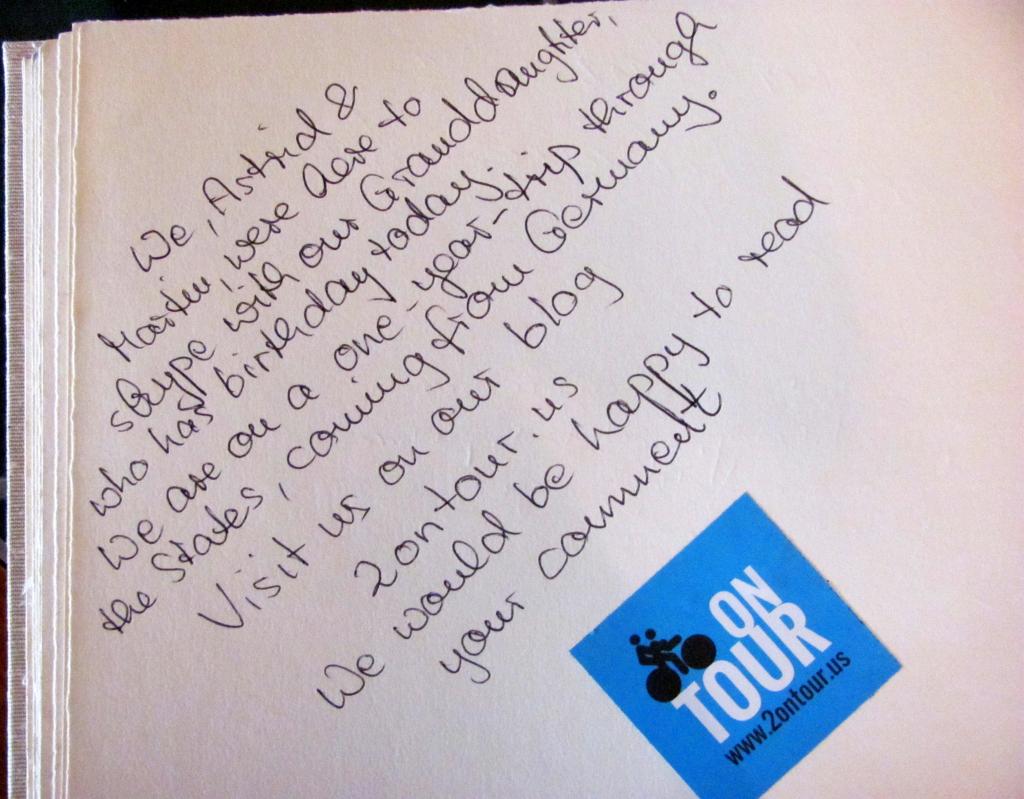 We, Astrid &
Martin, were here to
skype with our Granddaughter,
who has birthday today.
We are on a one-year-trip through
the States, coming from Germany.
Visit us on our blog
2ontour.us
We would be happy to read
your comment
ON
TOUR
www.2ontour.us